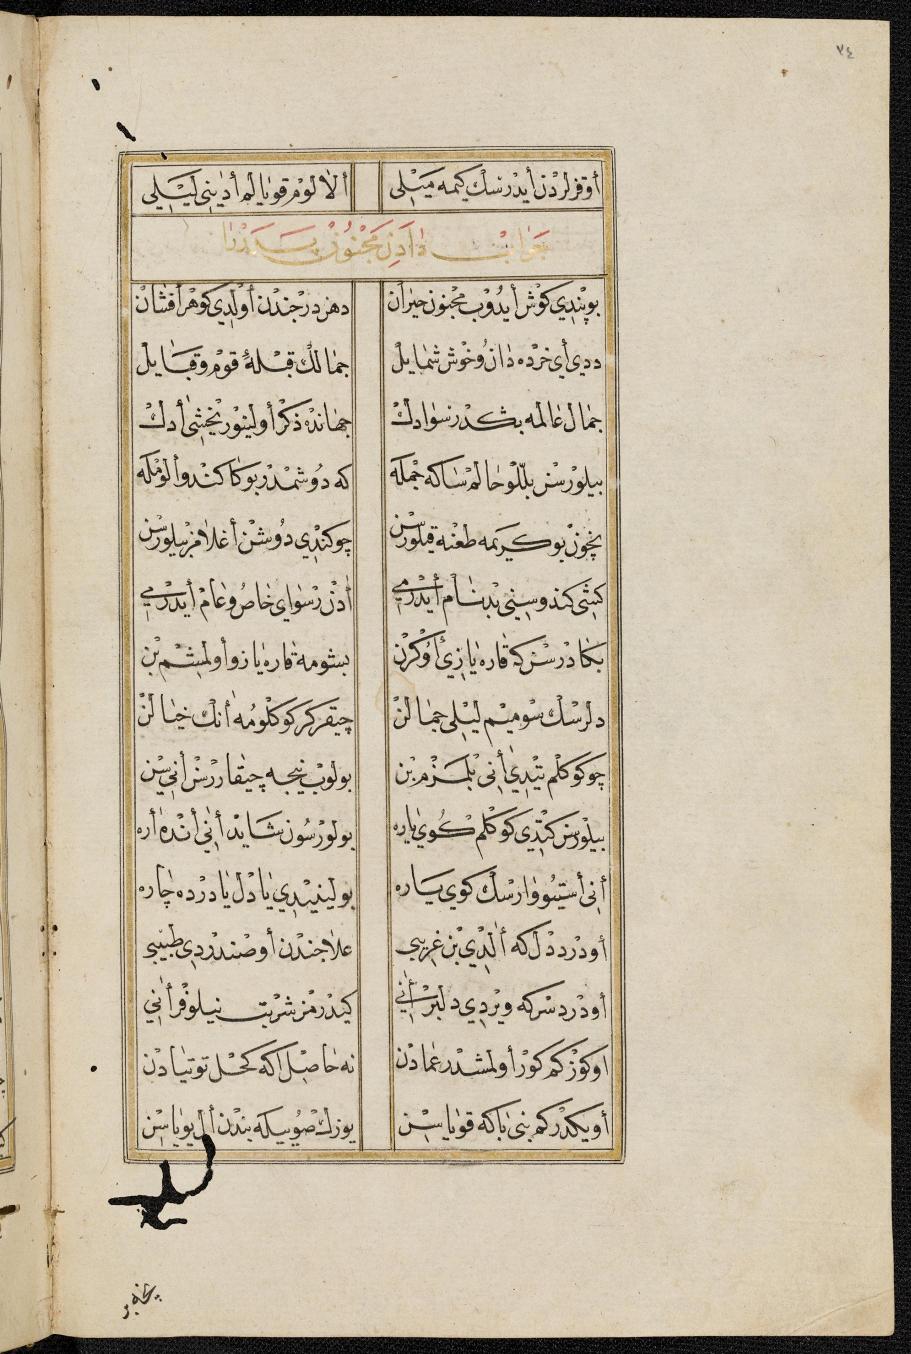 ٣٤
أوقزلردن أيدرسك كيمه ميلى ألالوم قويالم أدينى ليلى
جواب دادن مجنون پدر را
بوپندي كوش أيدوب مجنون حيران دهن درجندن أولدي كوهر أفشان
ددي أي خرده دان و خوش شمايل جمالك قبلۀ قوم و قبايل
جمال عالمه بكدر سوادك جهانده ذكر أولينور يخشى أدك
بيلورسن بللو حالم ساكه جمله كه دوشمدر بوكا كندو ألومله
نچون بو كريمه طعنه قيلورسن چو كندي دوشن أغلامز بيلورسن
كشى كندوسينى بدنام أيدرمي أدن رسواي خاص و عام أيدرمي
بكا درسن كه قاره يازي أوكرن بشومه قاره يازو أولمشم بن
دلرسك سوميم ليلى جمالن چيقركر كوكلومه أنك خيالن
چو كوكلم يتدي أنى بلمزم بن بولوب نيجه چيقاررسن أنى سن
بيلورسن كتدي كوكلم كوي ياره بولورسون شايد أنى أنده أره
أنى أستيو وارسك كوي ياره بولينيدي يا دل يا درده چاره
أو درد دل كه ألدي بن غريبى علاجندن أوصندردي طبيبى
أو درد سر كه ويردي دلبر أنى كيدرمز شربت نيلوفر أنى
اوكوز كم كور أولمشدر عمادن نه حاصل اكه كحل توتيادن
أو يكدر كم بنى باكه قوياسن يوزك صوييله بندن أل يوياسن